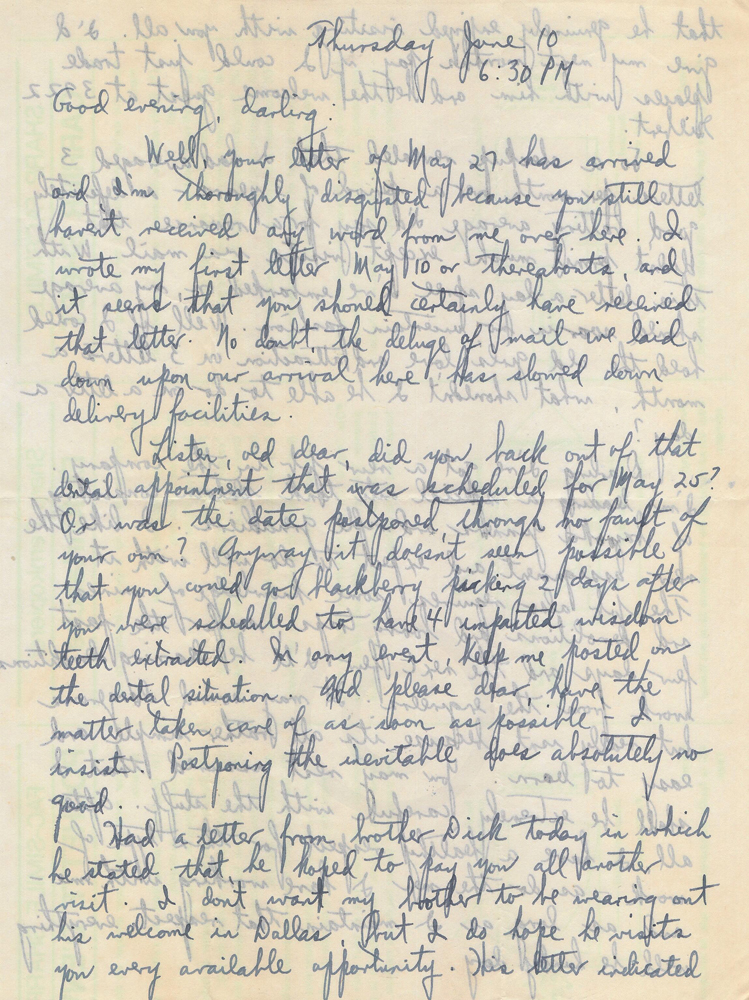 Thursday June 10
6:30 PM
Good evening, darling:
Well, your letter of May 27 has arrived
and I'm thoroughly disgusted because you still
haven't received any word from me over here. I
wrote my first letter May 10 or thereabouts, and
it seems that you should certainly have received
that letter. No doubt, the deluge of mail we laid
down upon our arrival here has slowed down
delivery facilities.
Listen, old dear, did you back out of that
dental appointment that was scheduled for May 25?
Or was the date postponed through no fault of
your own? Anyway it doesn't seem possible
that you could go blackberry picking 2 days after
you were scheduled to have 4 impacted wisdom
teeth extracted. In any event, keep me posted on
the dental situation. And please dear, have the
matter taken care of as soon as possible - I
insist. Postponing the inevitable does absolutely no
good.
Had a letter from brother Dick today in which
he stated that he hoped to pay you all another
visit. I don't want my brother to be wearing out
his welcome in Dallas, but I do hope he visits
you every available opportunity. His letter indicated